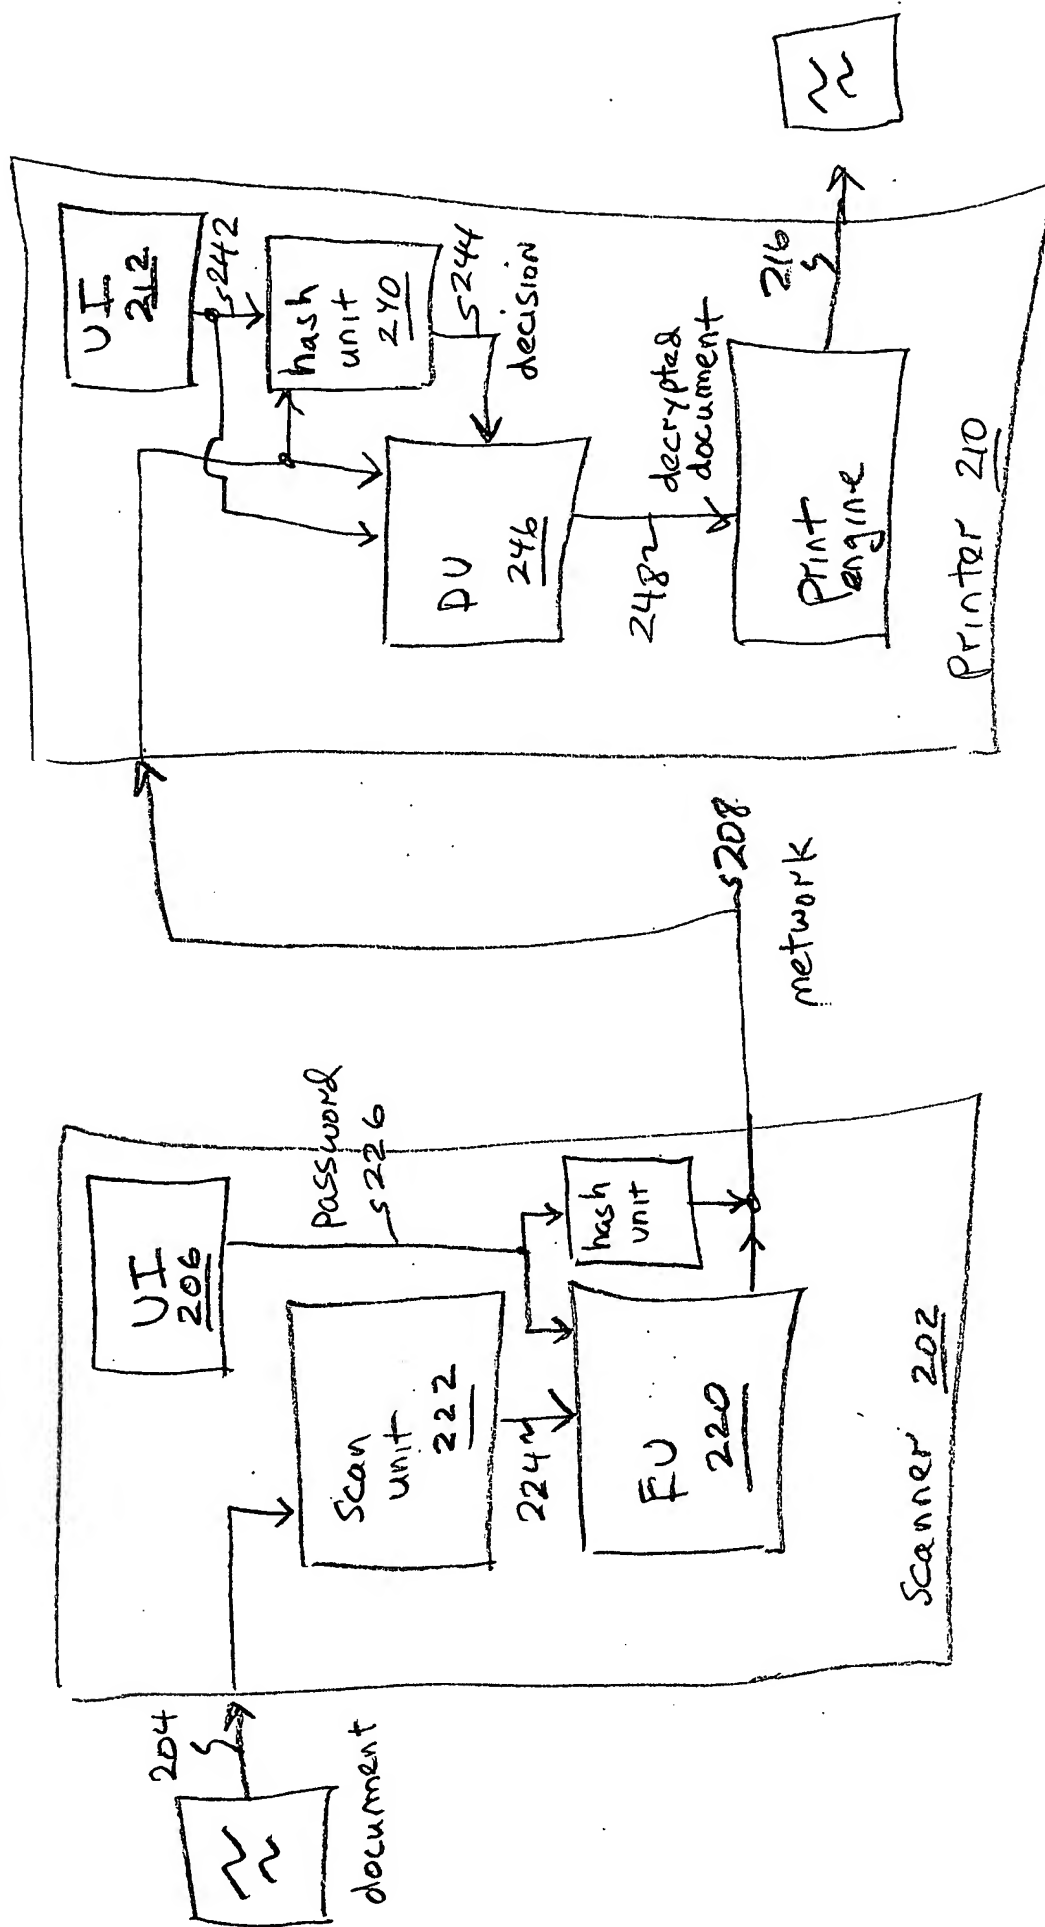 204
document
UI
206
Scan
unit
222
password
226
224
EU
220
hash
unit
Scanner 202
208
network
UI
212
242
hash
unit
240
244
decision
DU
246
248
decrypted
document
Print
engine
216
Printer 210